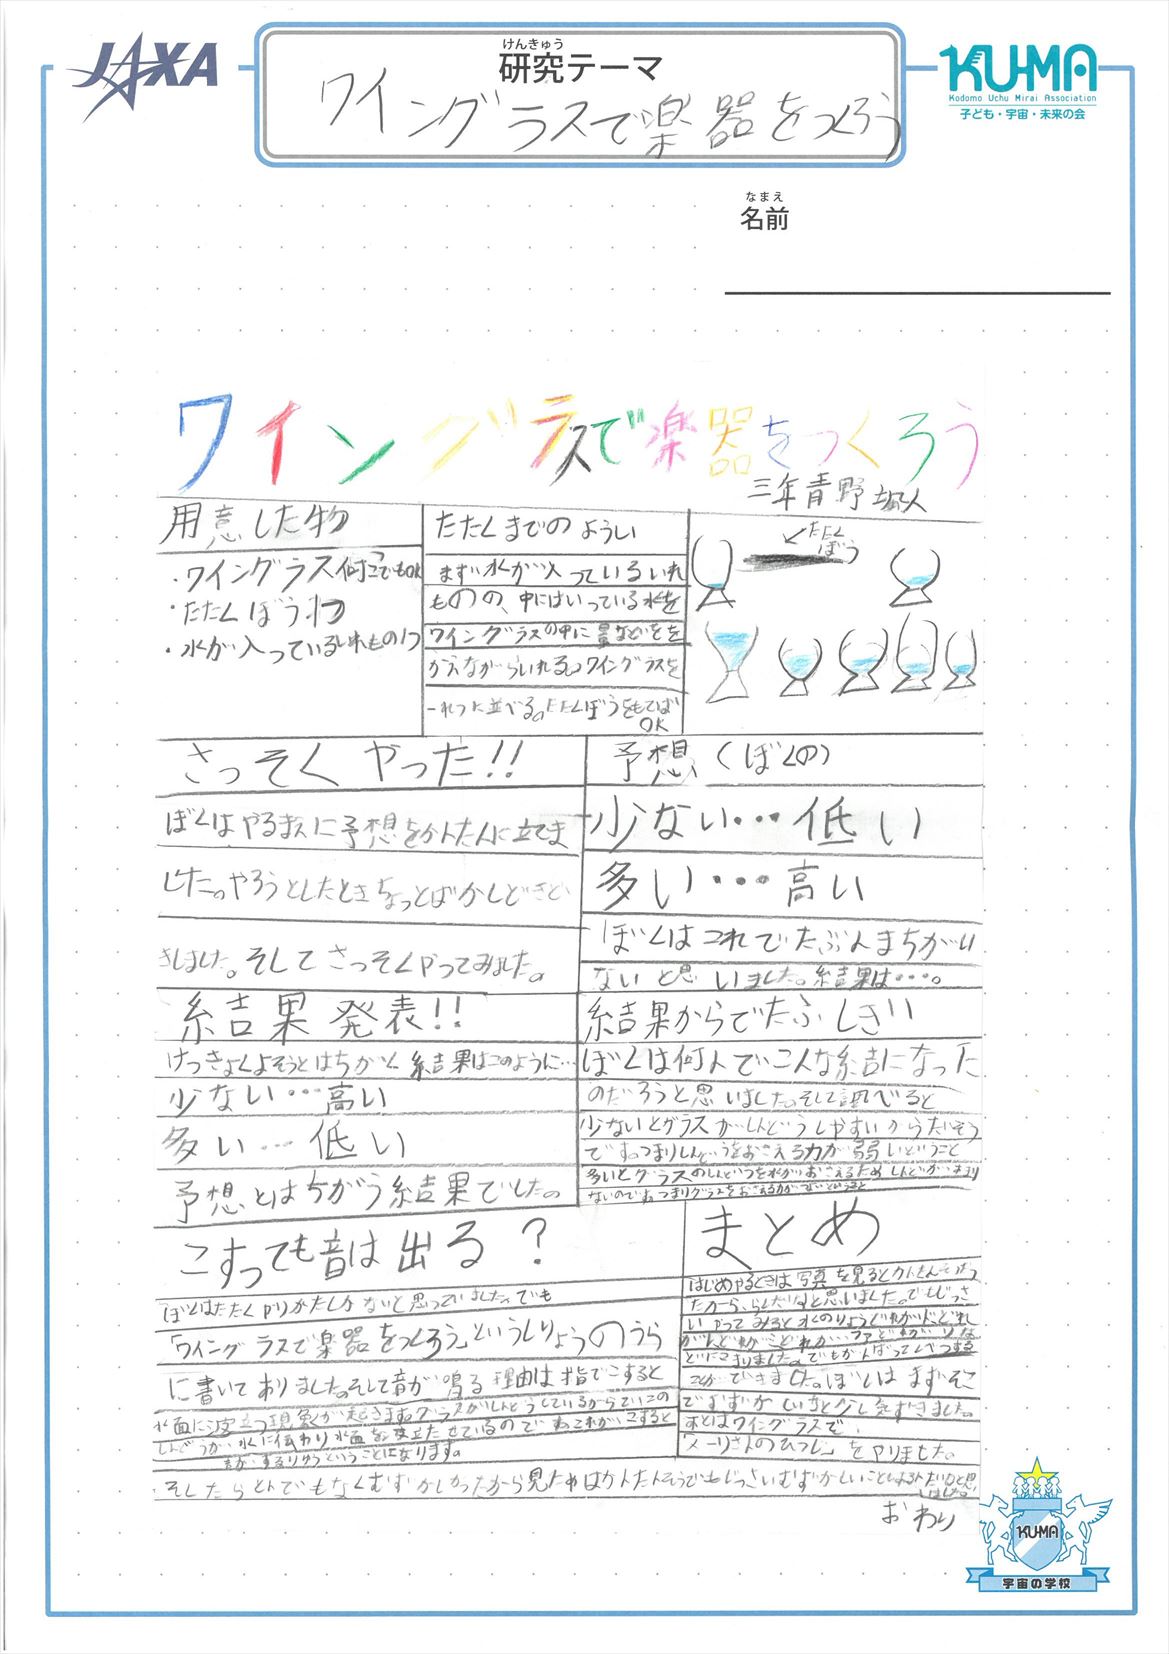 JAXA
けんきゅう
研究テーマ
ワイングラスで楽器をつくろう
KU-MA
Kodomo Uchu Mirai Association
子ども・宇宙・未来の会
なまえ
名前
ワイングラスで楽器をつくろう
三年青野
用意した物
・ワイングラス何こでもOK
・たたくぼう1つ
・水が入っているいれもの1つ
たたくまでのようい
まず水が入っているいれ
ものの、中にはいっている水を
ワイングラスの中に量などをを
かえながらいれる。ワイングラスを
一れつに並べる。たたくぼうをもてば
OK
たたく
ぼう
さっそくやった!!
ぼくはやるまえに予想をかんたんに立てま
した。やろうとしたときちょっとばかしどきど
きしました。そしてさっそくやってみました。
予想(ぼくの)
少ない…低い
多い…高い
ぼくはこれでたぶんまちがい
ないと思いました。結果は…。
結果発表!!
けっきょくよそうとはちがく結果はこのように…
少ない…高い
多い…低い
予想とはちがう結果でした。
結果からでたふしぎ
ぼくは何んでこんな結果になった
のだろうと思いました。そして調べると
少ないとグラスがしんどうしやすいからだそう
です。つまりしんどうをおさえる力が弱いということ
多いとグラスのしんどうを水がおさえるため
こすっても音は出る?
ぼくはたたくやりかたしかないと思っていました。でも
「ワイングラスで楽器をつくろう」というしりょうのうら
に書いてありました。そして音が鳴る理由は指でこすると
水面に波立つ現象が起きます。グラスがしんどうしているからでいこの
しんどうが水に伝わり水面を波立たせているので
音がするりゆうということになります。
そしたらとんでもなくむずかしかったから見た中はかんたんそうでもじっさいむずかしいこと
まとめ
はじめやるときは写真を見るとかんたんそうだっ
たから、らくだなと思いました。でもじっさ
いやってみると水のりょうぐれがド、どれ
がレどれがミどれがファ
どにこまりました。でもがんばってくべつする
ことができました。ぼくはまずそこ
でむずかしいなと少し気ずきました。
あとはワイングラスで、
「メーリさんのひつじ」をやりました。
おわり
KU-MA
宇宙の学校